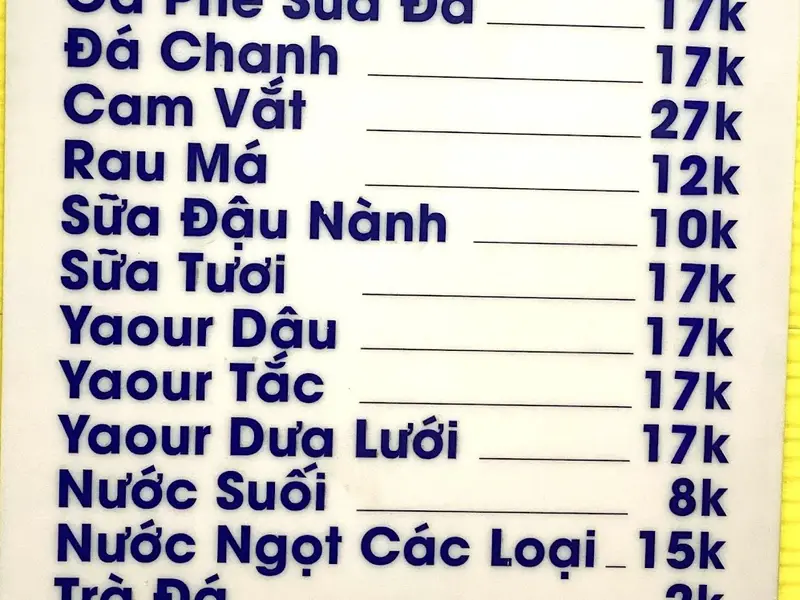 Cà Phê Sữa Đá 17k
Đá Chanh 17k
Cam Vắt 27k
Rau Má 12k
Sữa Đậu Nành 10k
Sữa Tươi 17k
Yaour Dâu 17k
Yaour Tắc 17k
Yaour Dưa Lưới 17k
Nước Suối 8k
Nước Ngọt Các Loại 15k
Trà Đá 2k